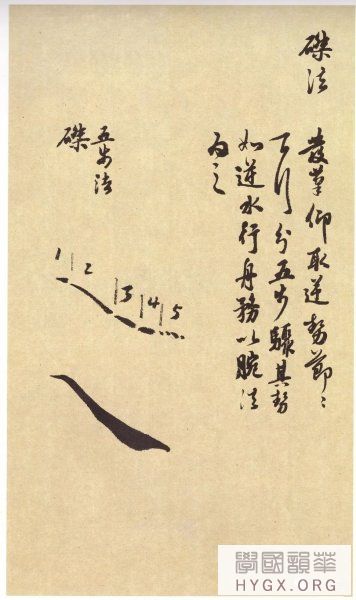 磔法
發筆仰取逆勢節〻
下行分五步驟其勢
如逆水行舟務以腕法
為之
五步法
磔
1 2 3 4 5
學國韻華
HYGX.ORG